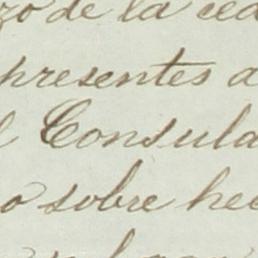 zo de la ced
presentes a
l Consula
o sobre hec